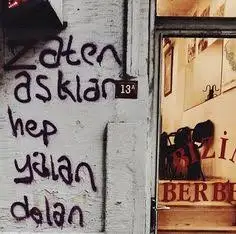 Zaten
asklar
hep
yalan
dolan
13A
BİZİM
BERBE